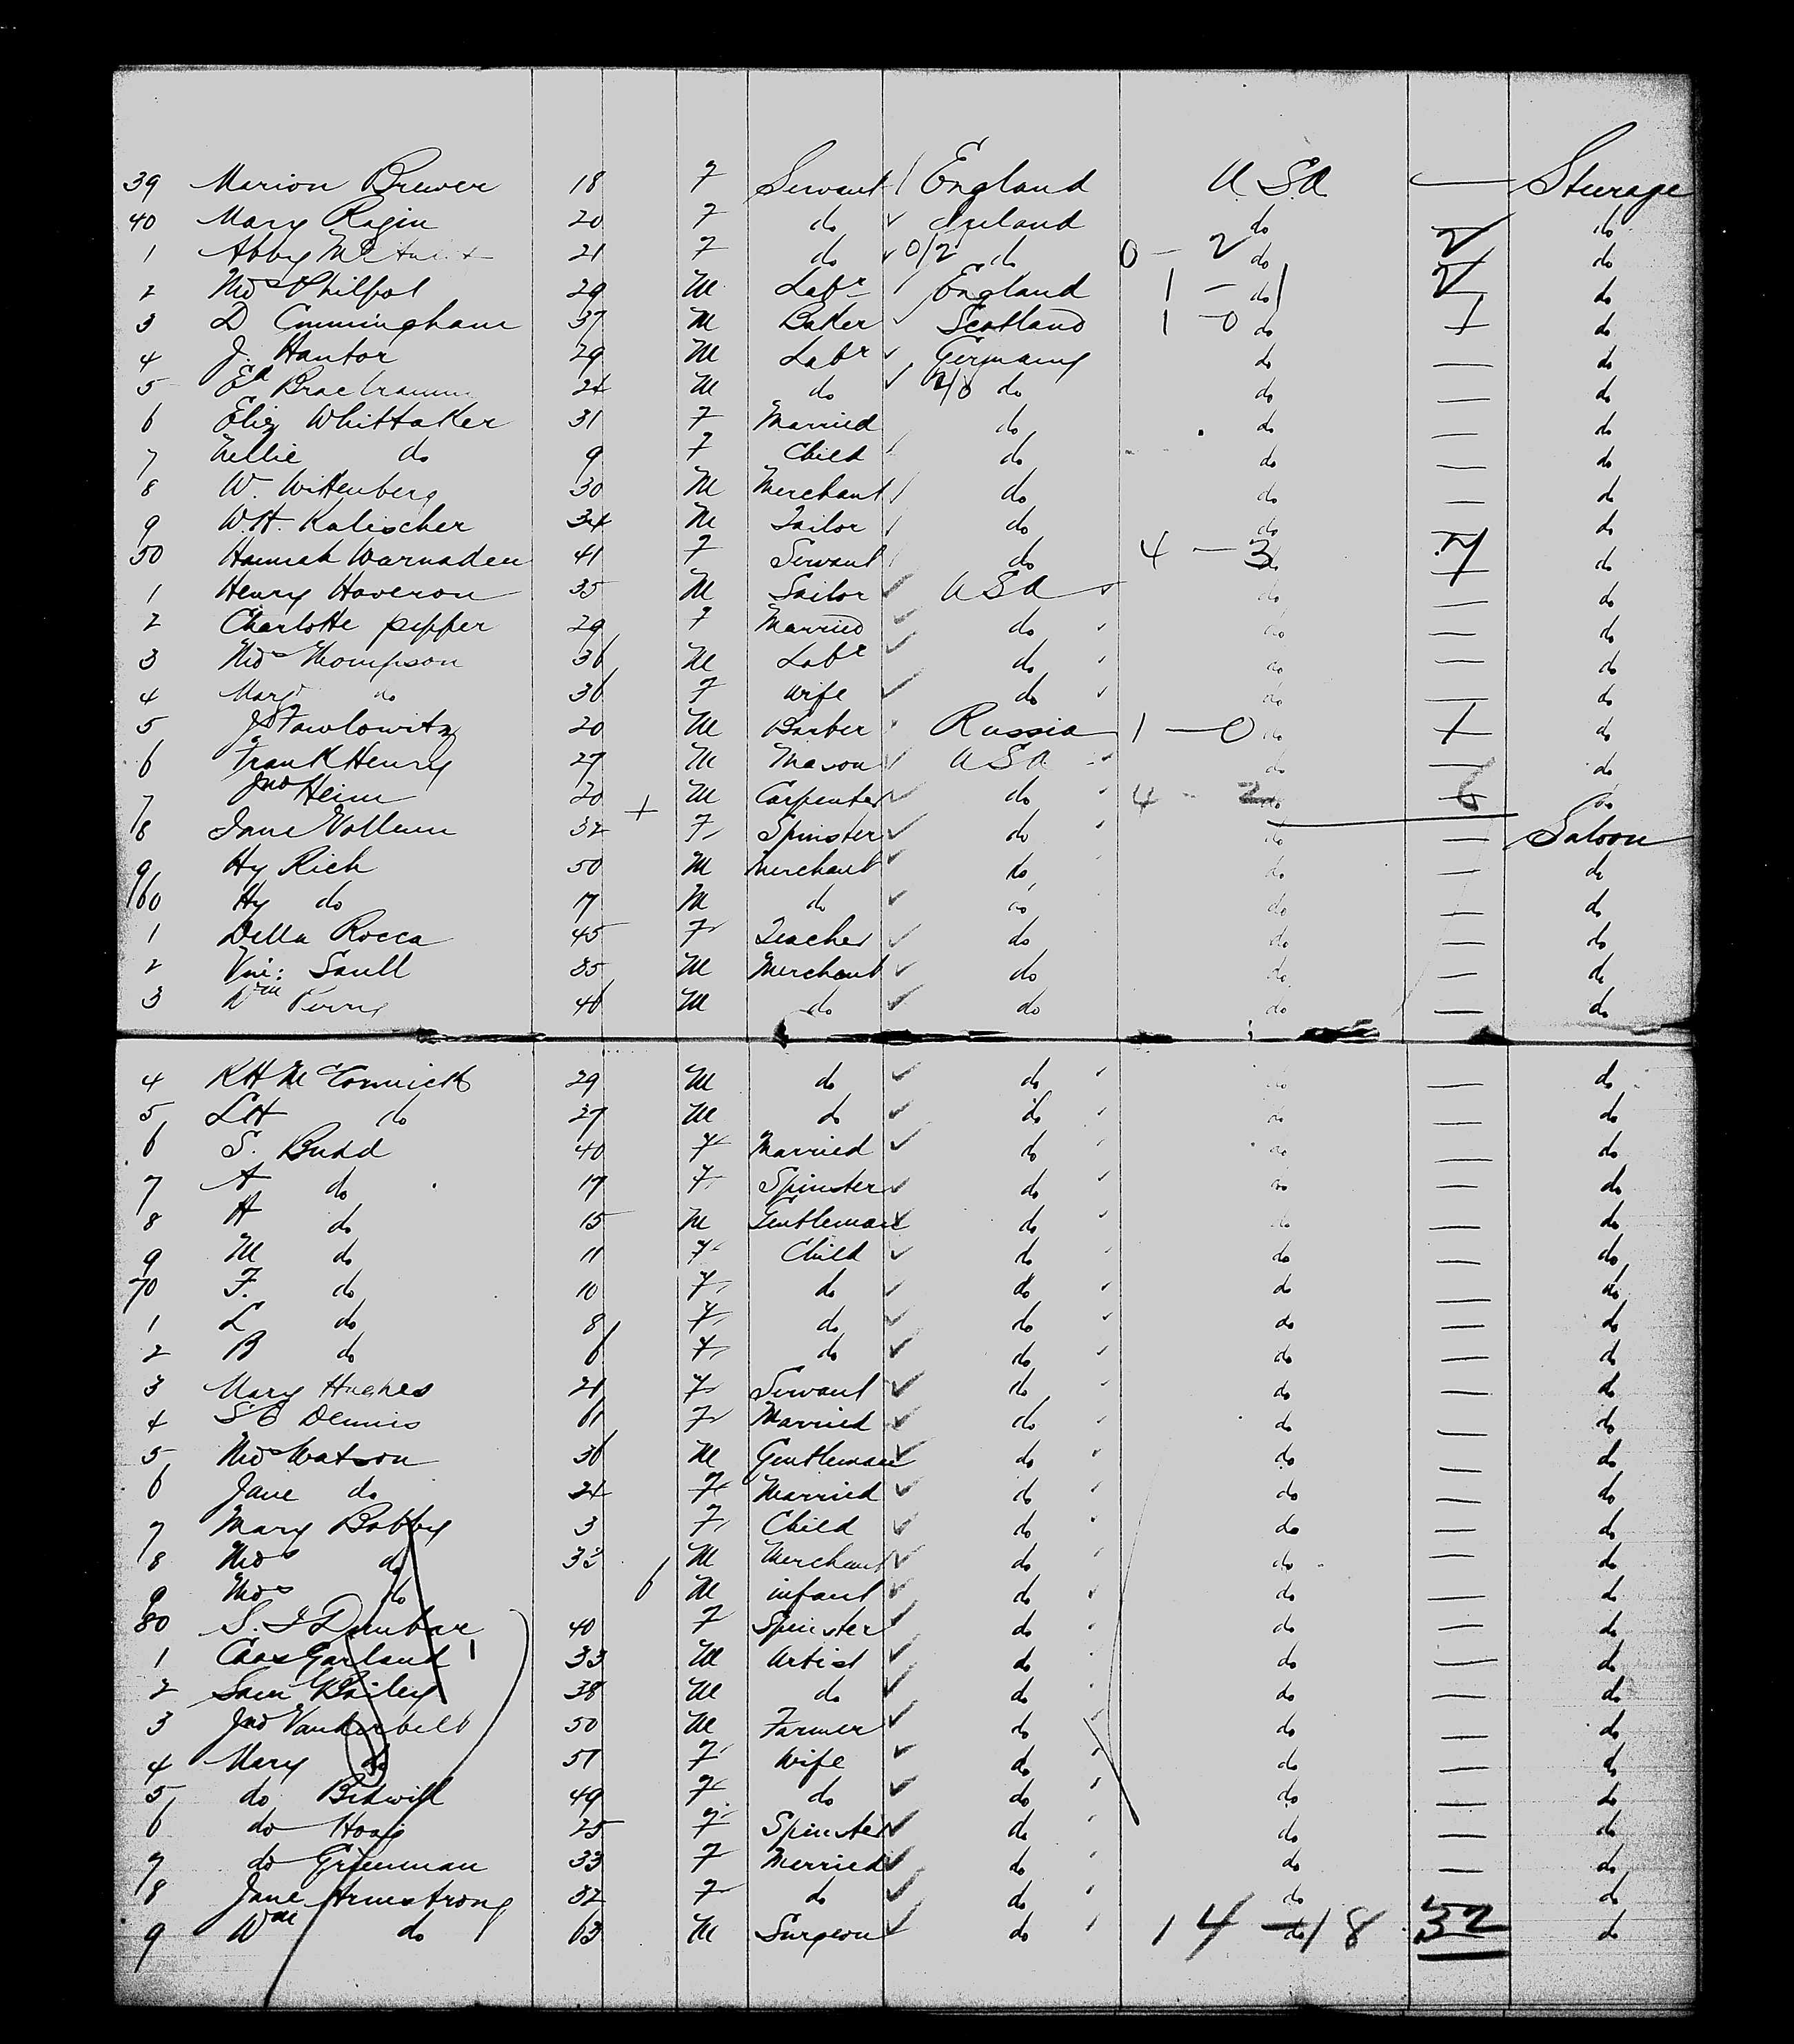 39 Marion Brewer 18 F Servant / England U.S.A — Steerage
40 Mary Ragin 20 F do Ireland do do
1 Abby 21 F do 0/2 do 0 - 2 do 2 do
2 Thos Philpot 29 M Labr / England 1 - do 1 2 do
3 D Cunningham 37 M Baker Scotland 1 - 0 do 1 do
4 J. Hantor 29 M Labr Germany do — do
5 Ed 24 M do do do — do
6 Eliz Whittaker 31 F Married do do — do
7 Nellie do 9 F Child do do — do
8 W. Wittenberg 30 M Merchant / do do — do
9 W.H. Kalischer 34 M Tailor / do do do
50 Hannah Warnaden 41 F Servant do 4 - 3 do 7 do
1 Henry Haveron 35 M Sailor U S A do — do
2 Charlotte pepper 29 F Married do do — do
3 Thos Thompson 36 M Labr do do — do
4 Margt do 36 F Wife do do — do
5 J Pawlowitz 20 M Barber Russia 1 - 0 do 1 do
6 Frank Henry 27 M Mason U S A do — do
7 Jno Heim 20 + M Carpenter do 4 - 2 do 6 do
8 Jane 32 F Spinster do do — Saloon
9 Hy Rich 50 M Merchant do do — do
60 Hy do 17 M do do do — do
1 Della Rocca 45 F Teacher do do — do
2 Saull 35 M Merchant do do — do
3 Wm 46 M do do do — do
4 KH McCormick 29 M do do do — do
5 LH do 27 M do do do — do
6 S. Budd 40 F Married do do — do
7 A do 17 F Spinster do do — do
8 H do 15 M Gentleman do do — do
9 M do 11 F Child do do — do
70 F. do 10 F do do do — do
1 L do 8 F do do do — do
2 B do 6 F do do do — do
3 Mary Hughes 21 F Servant do do — do
4 S C Dennis 61 F Married do do — do
5 Thos Watson 36 M Gentleman do do — do
6 Jane do 24 F Married do do — do
7 Mary Bobby 3 F Child do do — do
8 Thos do 33 M Merchant do do — do
9 Thos do 6 M infant do do — do
80 S. J Dunbar 40 F Spinster do do — do
1 Chas Garland 33 M Artist do do — do
2 Sam Bailey 38 M do do do — do
3 Jno Vanderbelt 50 M Farmer do do — do
4 Mary do 51 F Wife do do — do
5 do Bidwill 49 F do do do — do
6 do Hoag 25 F Spinster do do — do
7 do Grienman 33 F Married do do — do
8 Jane Armstrong 32 F do do do do
9 Wm do 63 M Surgeon do 14 - do 18 32 do